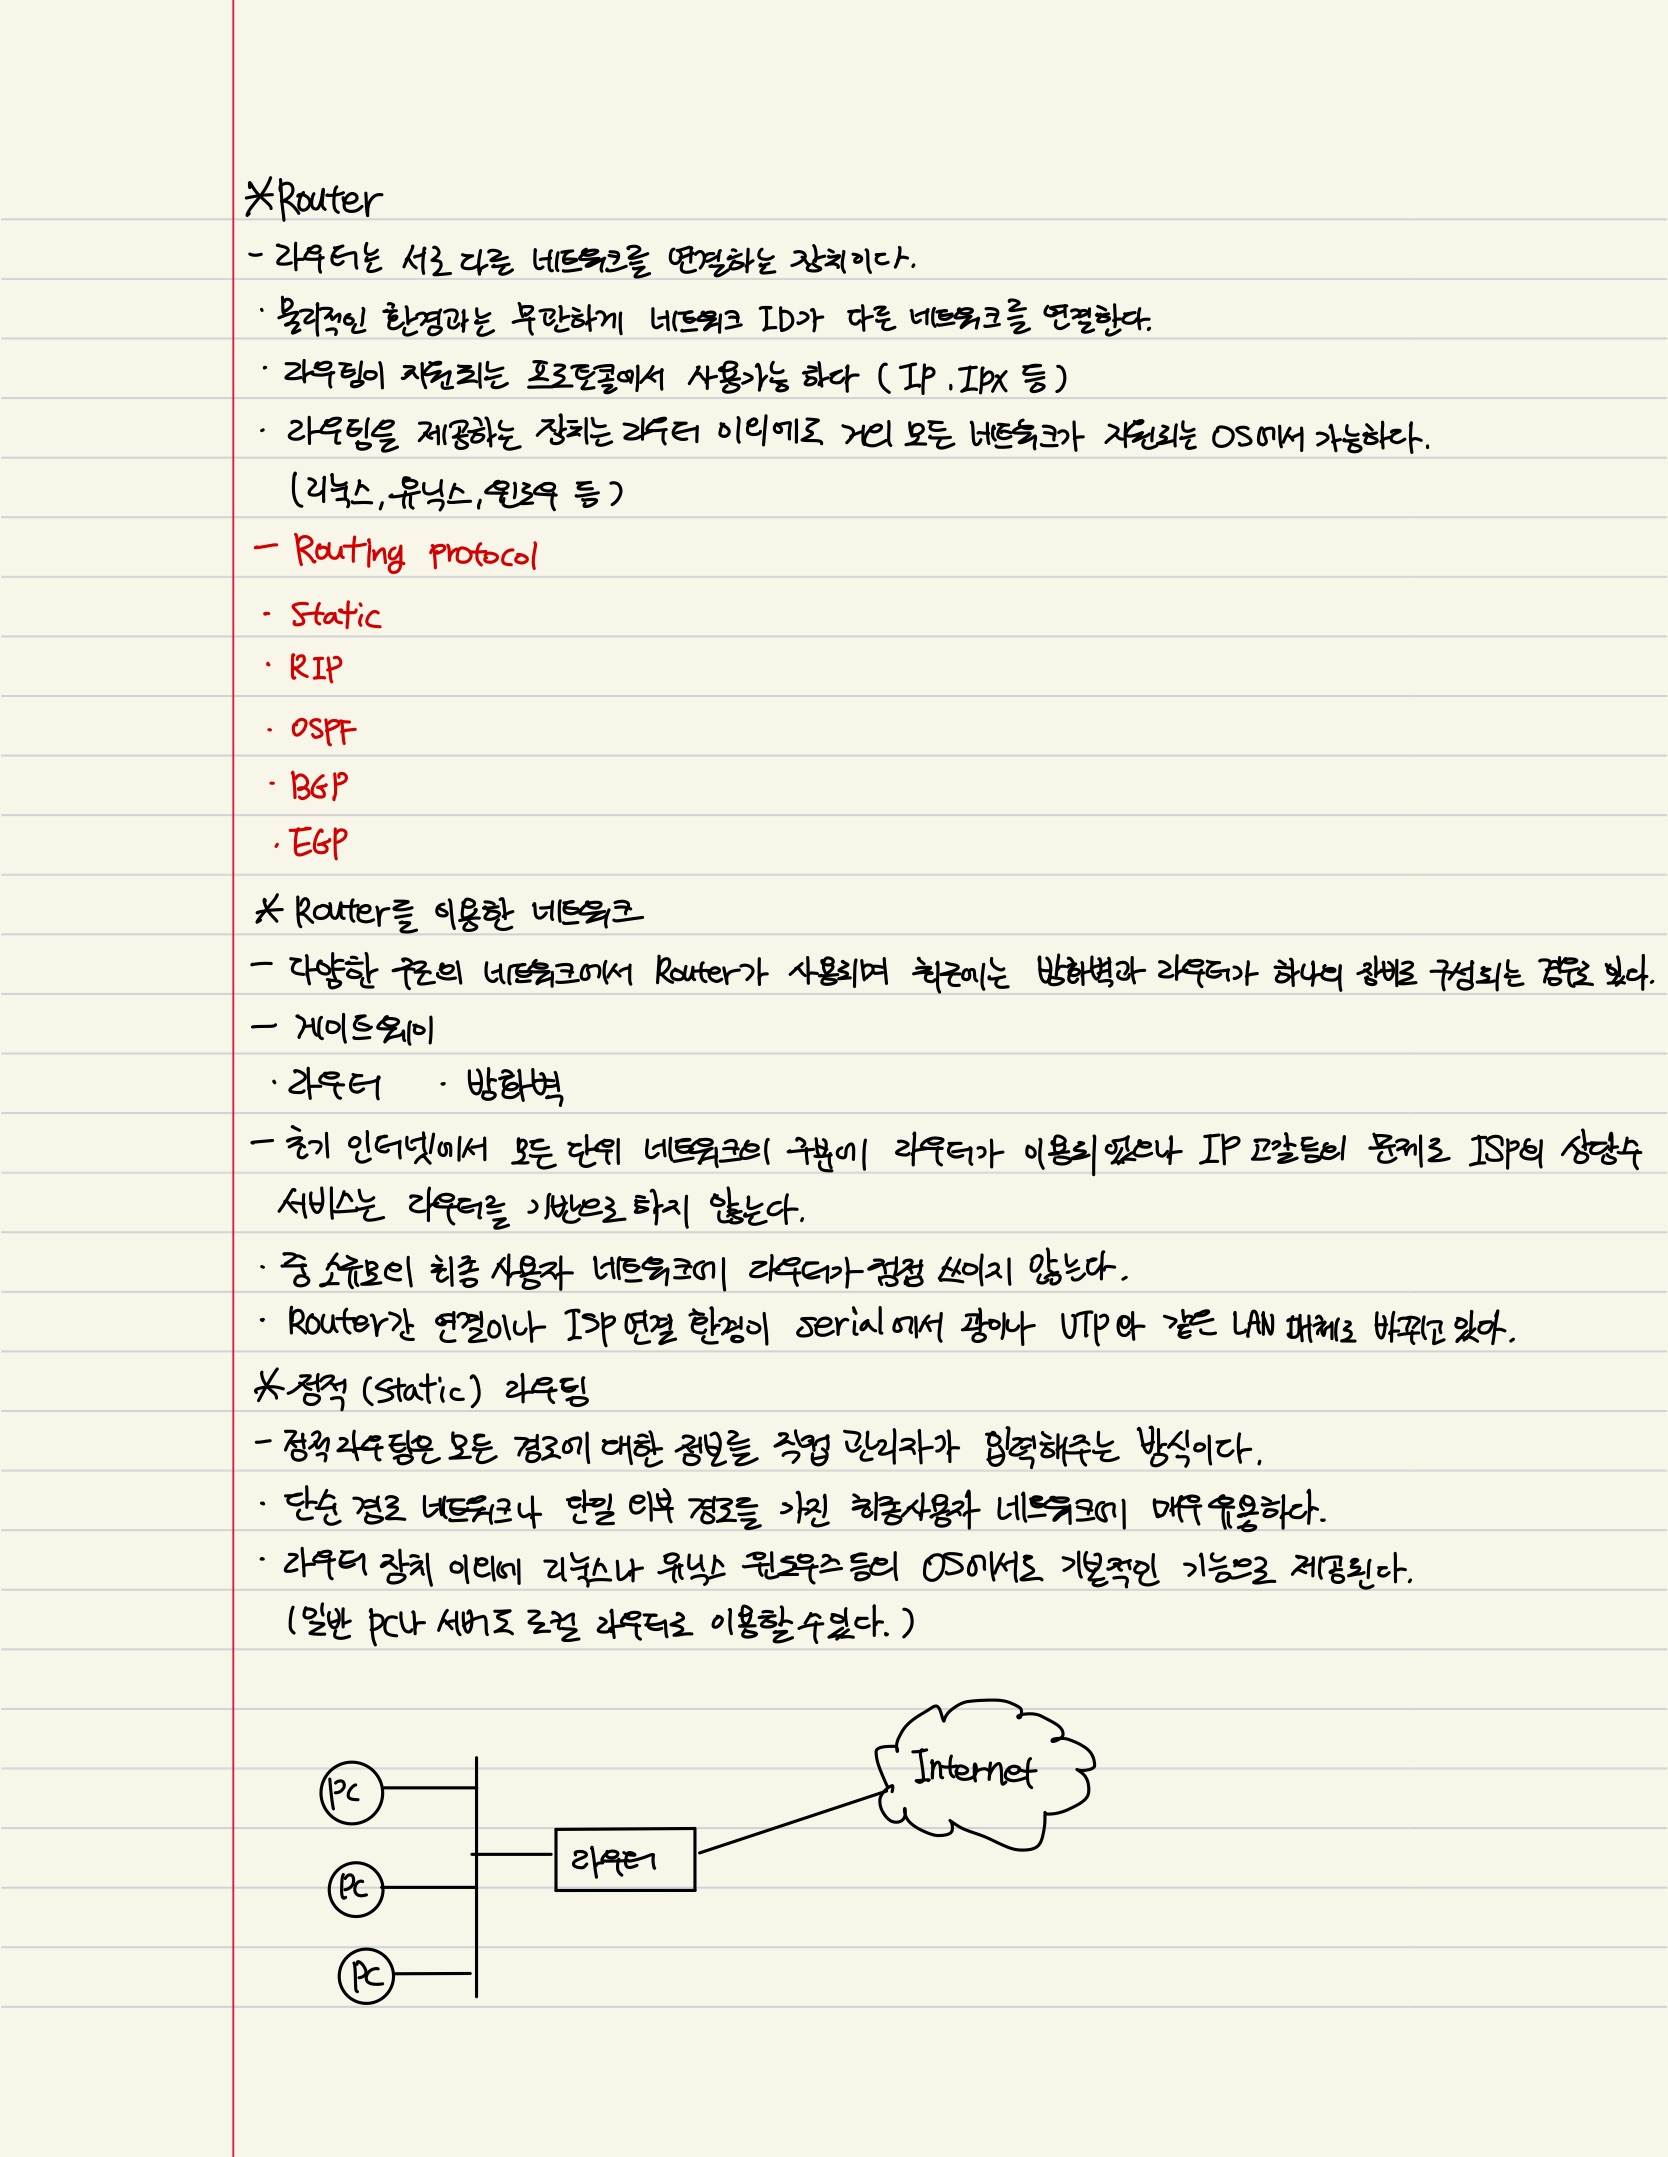 *Router
- 라우터는 서로 다른 네트워크를 연결하는 장치이다.
· 물리적인 환경과는 무관하게 네트워크 ID가 다른 네트워크를 연결한다.
· 라우팅이 지원되는 프로토콜에서 사용가능 하다 (IP, IPX 등)
· 라우팅을 제공하는 장치는 라우터 이외에도 거의 모든 네트워크가 지원되는 OS에서 가능하다.
(리눅스, 유닉스, 윈도우 등)
- Routing protocol
· Static
· RIP
· OSPF
· BGP
· EGP
* Router를 이용한 네트워크
- 다양한 구조의 네트워크에서 Router가 사용되며 최근에는 방화벽과 라우터가 하나의 장비로 구성되는 경우도 있다.
- 게이트웨이
· 라우터 · 방화벽
- 초기 인터넷에서 모든 단위 네트워크의 구분에 라우터가 이용되었으나 IP 고갈등의 문제로 ISP의 상당수
서비스는 라우터를 기반으로 하지 않는다.
· 중 소규모의 최종 사용자 네트워크에 라우터가 점점 쓰이지 않는다.
· Router간 연결이나 ISP 연결 환경이 serial에서 광이나 UTP와 같은 LAN 매체로 바뀌고 있다.
* 정적 (static) 라우팅
- 정적 라우팅은 모든 경로에 대한 정보를 직접 관리자가 입력해주는 방식이다.
· 단순 경로 네트워크나 단일 외부 경로를 가진 최종사용자 네트워크에 매우 유용하다.
· 라우터 장치 이외에 리눅스나 유닉스 윈도우즈 등의 OS에서도 기본적인 기능으로 제공된다.
(일반 PC나 서버도 로컬 라우터로 이용할 수 있다.)
Internet
PC
라우터
PC
PC